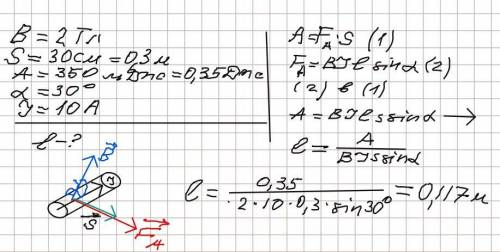 B = 2 Тл
S = 30 см = 0,3 м
A = 350 мДж = 0,35 Дж
α = 30°
I = 10 А
l - ?
A = Fₐ·S (1)
Fₐ = BIl sinα (2)
(2) в (1)
A = BIls sinα →
l = A / BIs sinα
l = 0,35 / 2·10·0,3·sin30° = 0,117 м
B
I
S
F A